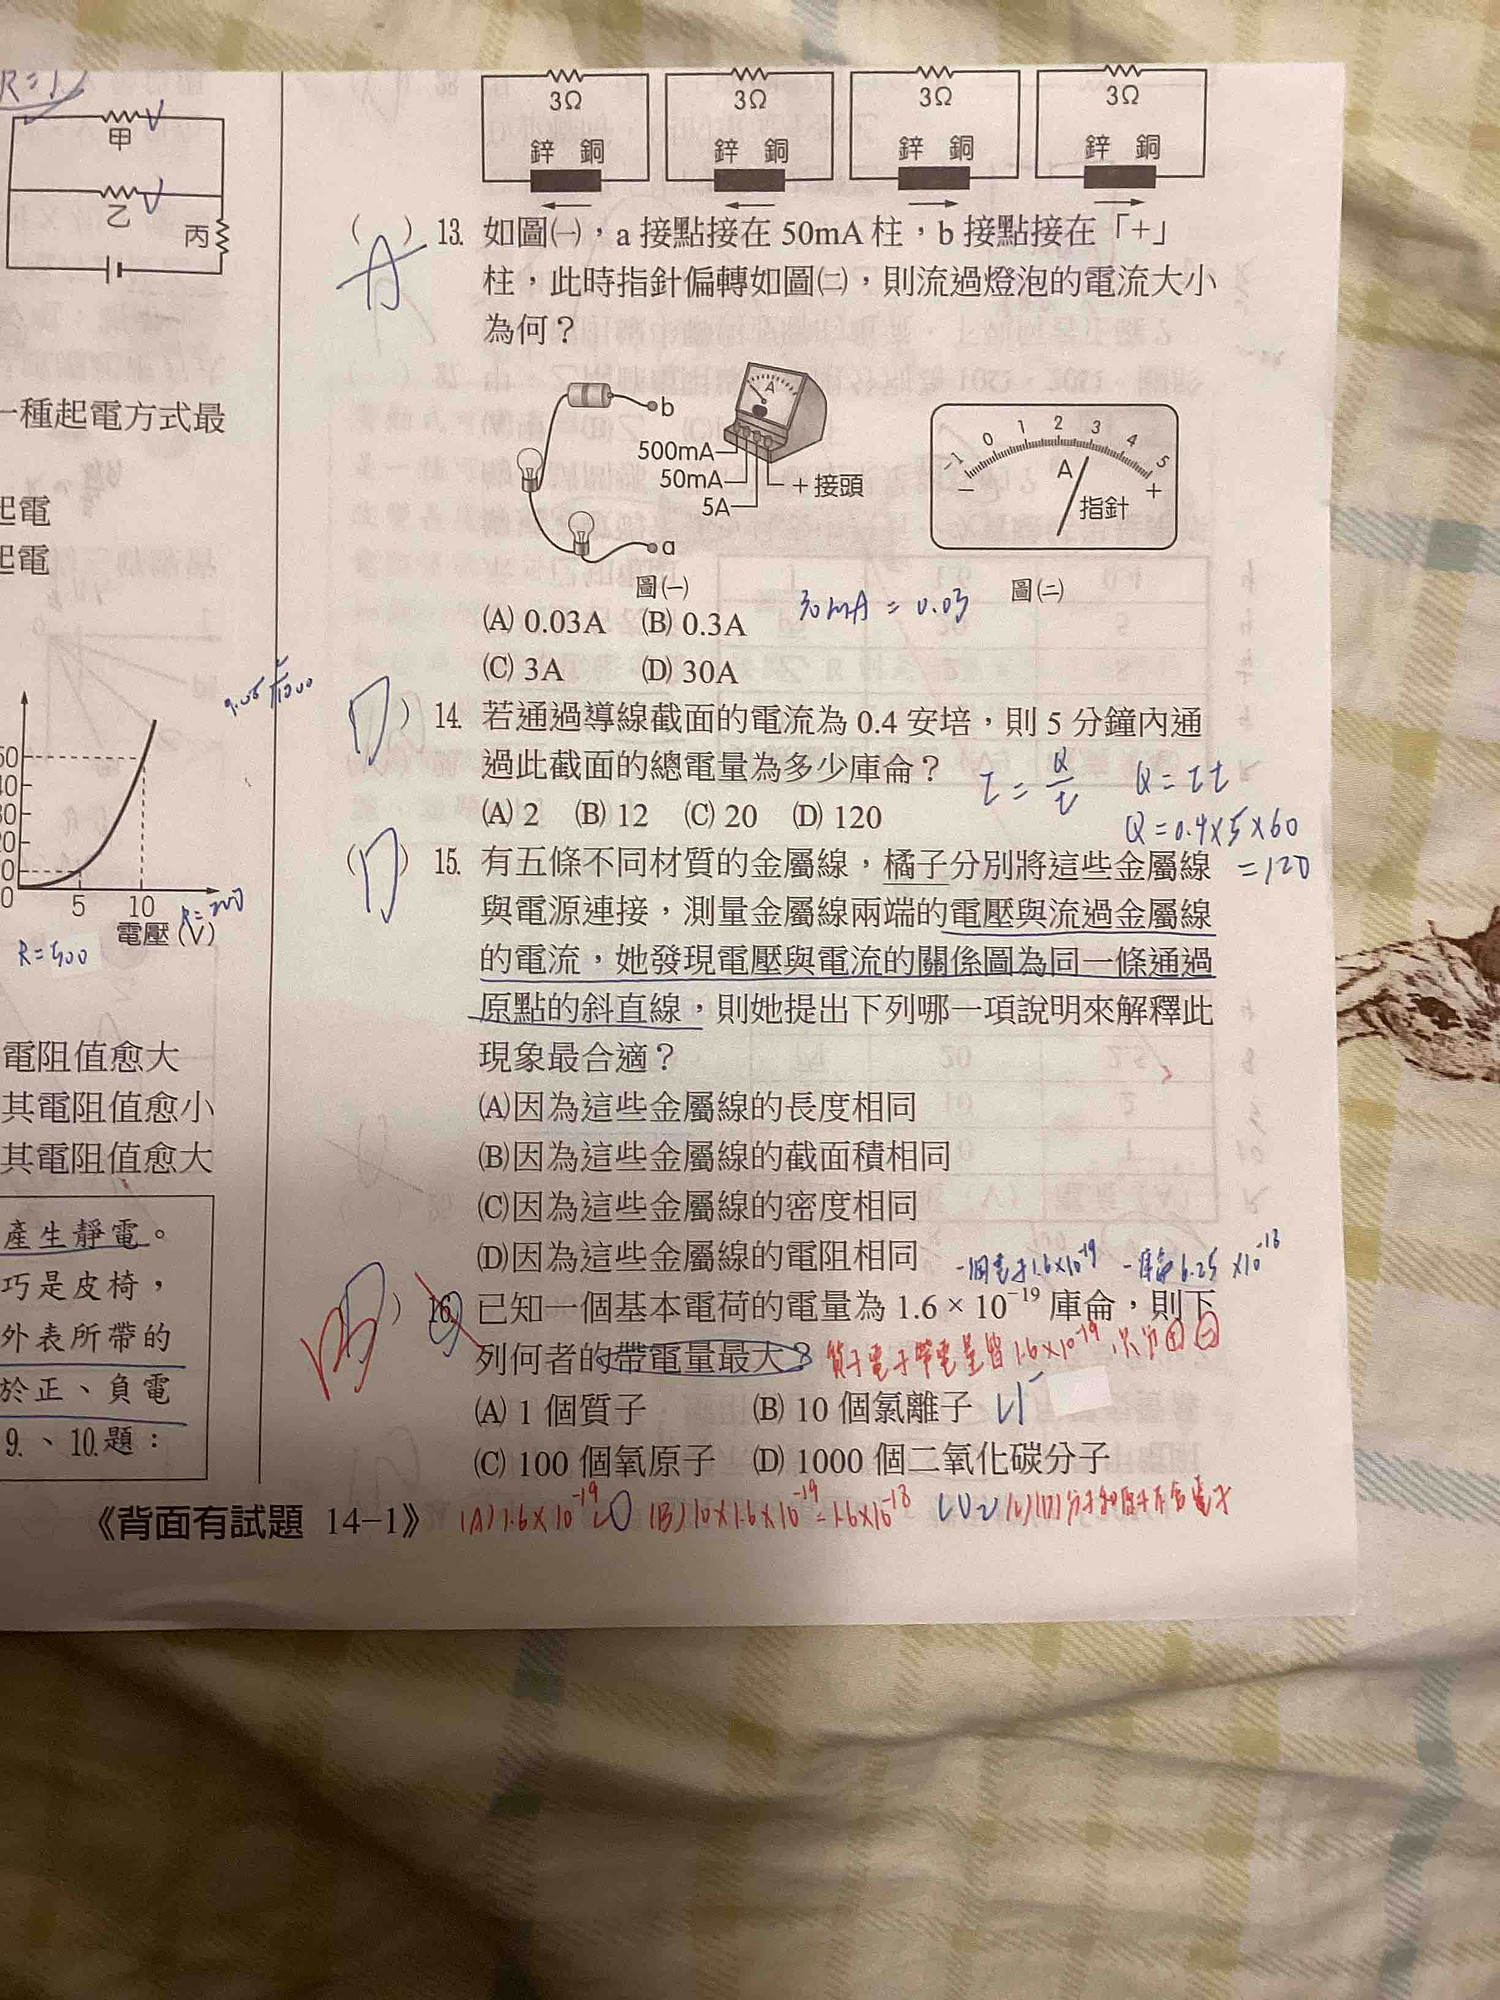 甲
乙
丙
一種起電方式最
起電
起電
50
40
30
20
10
0
5 10
電壓(V)
R=500
電阻值愈大
其電阻值愈小
其電阻值愈大
產生靜電。
巧是皮椅，
外表所帶的
於正、負電
9.、10.題：
《背面有試題 14-1》
3Ω 3Ω 3Ω 3Ω
鋅 銅 鋅 銅 鋅 銅 鋅 銅
( A ) 13. 如圖㈠，a 接點接在 50mA 柱，b 接點接在「+」
柱，此時指針偏轉如圖㈡，則流過燈泡的電流大小
為何？
b
500mA
50mA
5A
+接頭
a
A
-1 0 1 2 3 4 5
A
− +
指針
圖㈠ 圖㈡
30mA = 0.03
(A) 0.03A (B) 0.3A
(C) 3A (D) 30A
( D ) 14. 若通過導線截面的電流為 0.4 安培，則 5 分鐘內通
過此截面的總電量為多少庫侖？
I = Q/t Q = It
(A) 2 (B) 12 (C) 20 (D) 120
Q = 0.4×5×60
= 120
( D ) 15. 有五條不同材質的金屬線，橘子分別將這些金屬線
與電源連接，測量金屬線兩端的電壓與流過金屬線
的電流，她發現電壓與電流的關係圖為同一條通過
原點的斜直線，則她提出下列哪一項說明來解釋此
現象最合適？
(A)因為這些金屬線的長度相同
(B)因為這些金屬線的截面積相同
(C)因為這些金屬線的密度相同
(D)因為這些金屬線的電阻相同
一個電子1.6×10⁻¹⁹
) 16. 已知一個基本電荷的電量為 1.6 × 10⁻¹⁹ 庫侖，則下
列何者的帶電量最大？
質子電子帶電量皆1.6×10⁻¹⁹，只分⊕⊖
(A) 1 個質子 (B) 10 個氯離子
(C) 100 個氧原子 (D) 1000 個二氧化碳分子
(A)1.6×10⁻¹⁹ (B)10×1.6×10⁻¹⁹=1.6×10⁻¹⁸